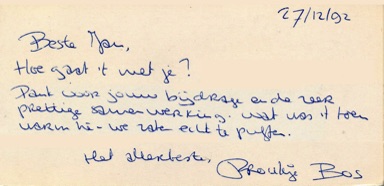 27/12/92
Beste Jan,
Hoe gaat 't met je?
Dank voor jouw bijdrage en de zeer
prettige samenwerking. Wat was 't toen
warm hè - we zaten echt te puffen.
Het allerbeste,
Froukje Bos